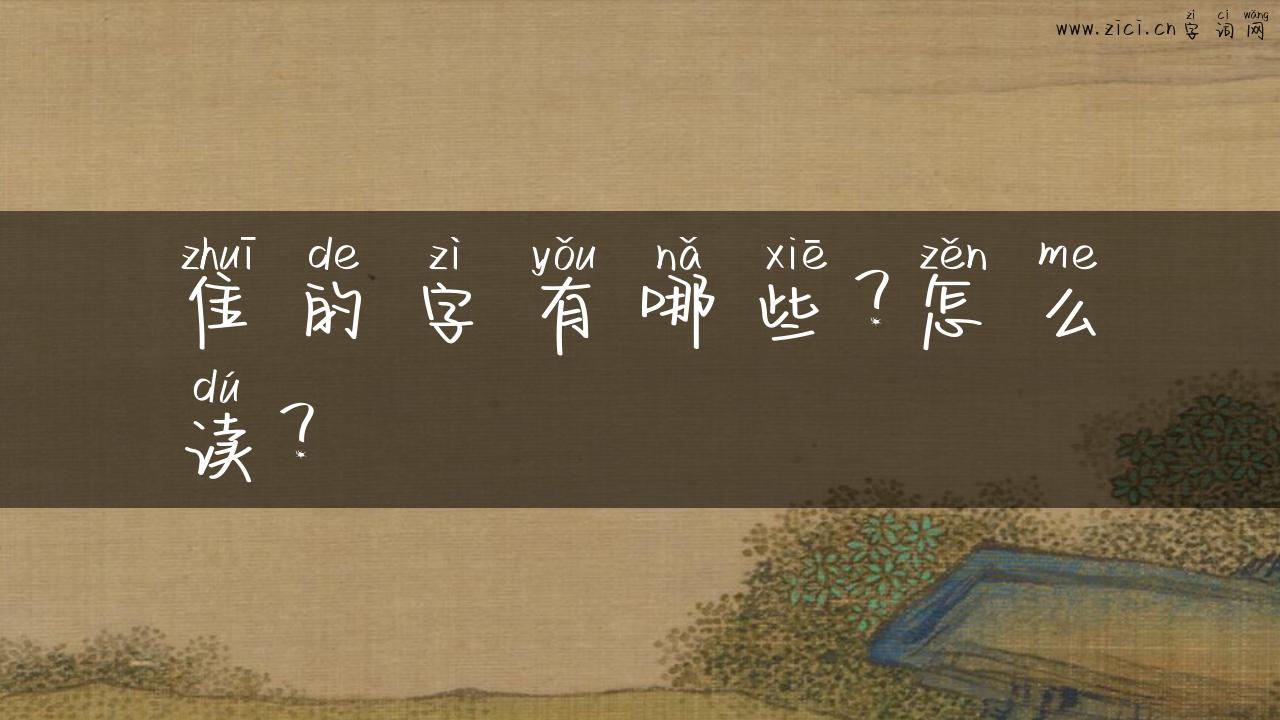 www.zici.cn字词网
zì cí wǎng
zhuī de zì yǒu nǎ xiē zěn me
隹的字有哪些？怎么
dú
读？